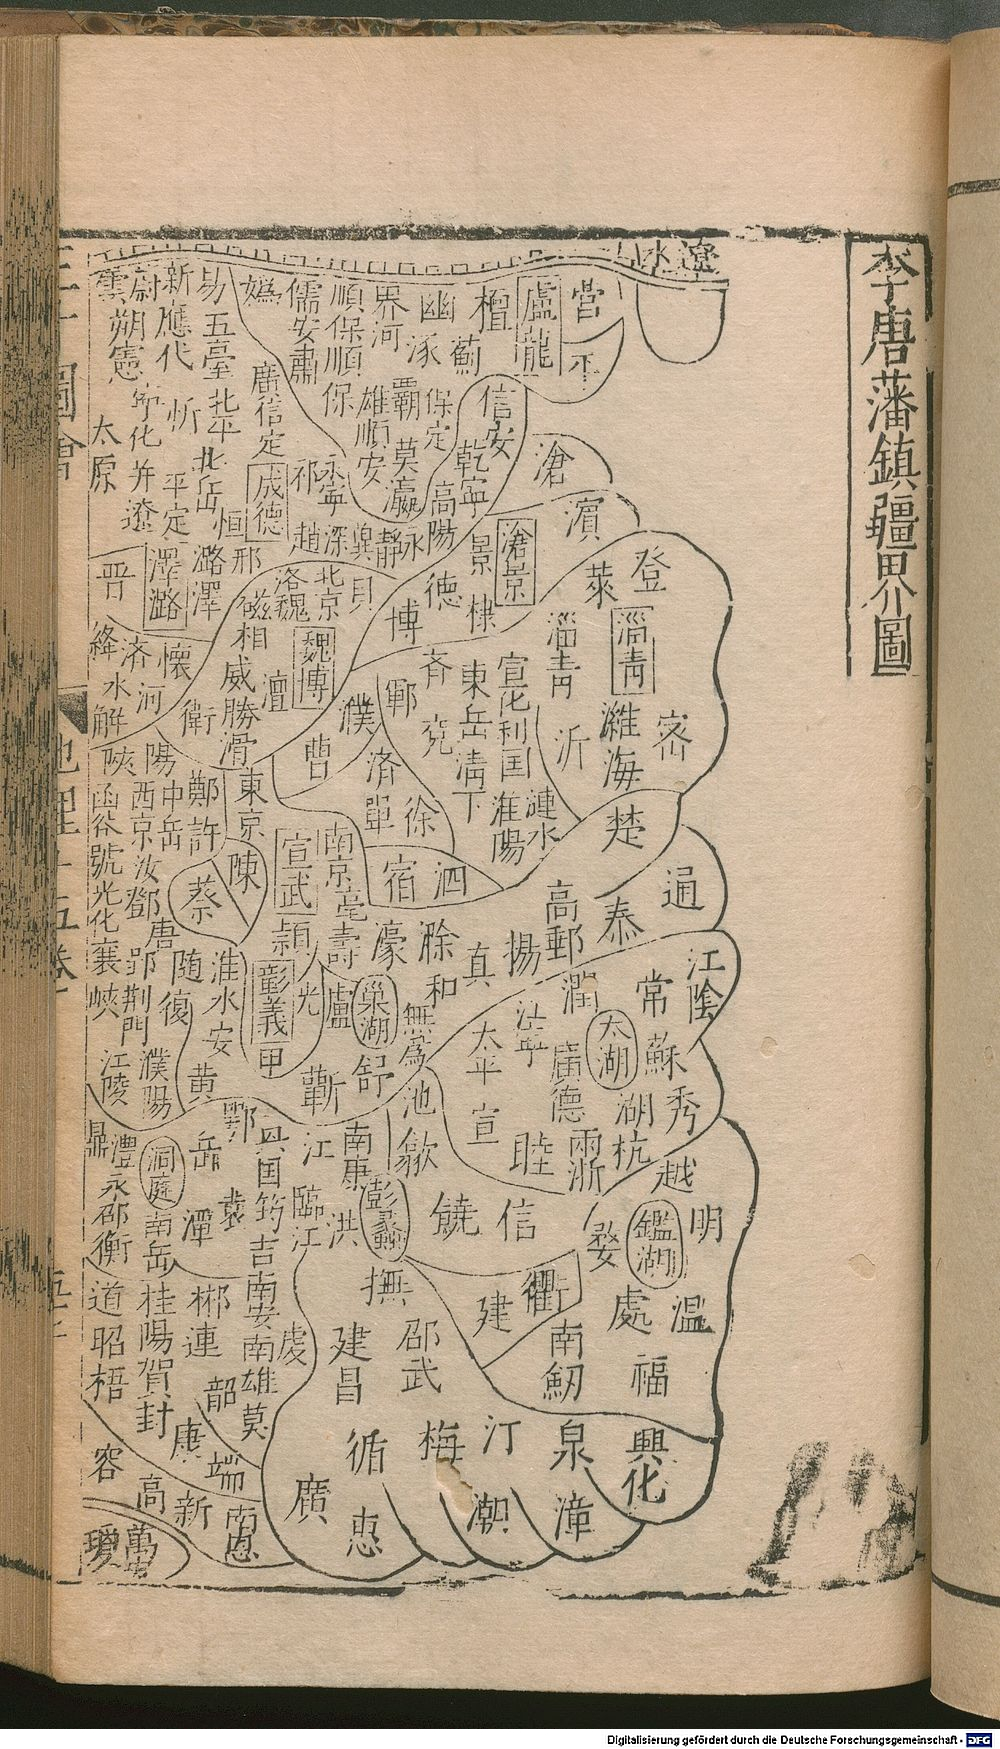 李唐藩鎮疆界圖
遼水
營
平
盧龍
檀
薊
幽
涿
界河
順保順保
儒安肅
媯
易五臺
新應代
忻
蔚
雲朔憲
太原
并遼
平定
北平
北岳
恒
廣信定
成德
祁
永寧
雄順安
霸
莫瀛
保定
高陽
乾寧
信安
滄
濱
滄景
景
棣
德
博
永靜
冀
深
趙
邢
潞澤
澤潞
晉
絳
濟河
懷
衛
水解
磁
相
威勝
滑
澶
洛魏
北京
貝
魏博
濮
鄆
齊
兗
東岳清下
宣化利国
淄青
淄青
萊
登
濰海
密
沂
漣水
淮陽
徐
濟
單
曹
東京
鄭許
陽中岳
西京汝鄧
唐
陝
函谷虢光化襄峽
蔡
陳
宣武
南京
亳
壽
潁
宿
泗
楚
通
泰
高郵
揚
真
滁
和
濠
無為
巢湖
廬
光
彭義
甲
淮水安
黄
随
復
郢荆門
江陵
濮陽
蘄
舒
池
歙
太平
宣
江寧
潤
廣德
太湖
常
江陰
蘇
秀
湖
杭
兩浙
睦
越
明
鑑湖
婺
處
温
福
衢
信
饒
彭蠡
南康
江
臨江
洪
興国
筠
吉南安南雄
處
鄂
岳
袁
潭
洞庭
南岳
澧
永邵衡
鼎
道昭梧
桂陽賀封
郴
連
韶
英
康
端
新
高
容
南恩
萬安
瓊
撫
建昌
邵武
建
南劒
興化
泉
漳
汀
潮
梅
循
惠
廣
三才圖會
地理十五卷
Digitalisierung gefördert durch die Deutsche Forschungsgemeinschaft - DFG